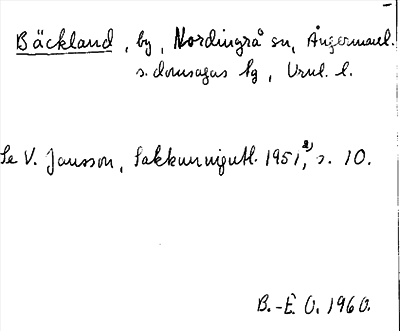 Bäckland, by, Nordingrå sn, Ångermanl.
s. domsagas tg, Vnl. l.
Se V. Jansson, Sakkunnigutl. 1951,²⁾ s. 10.
B.-E. O. 1960.